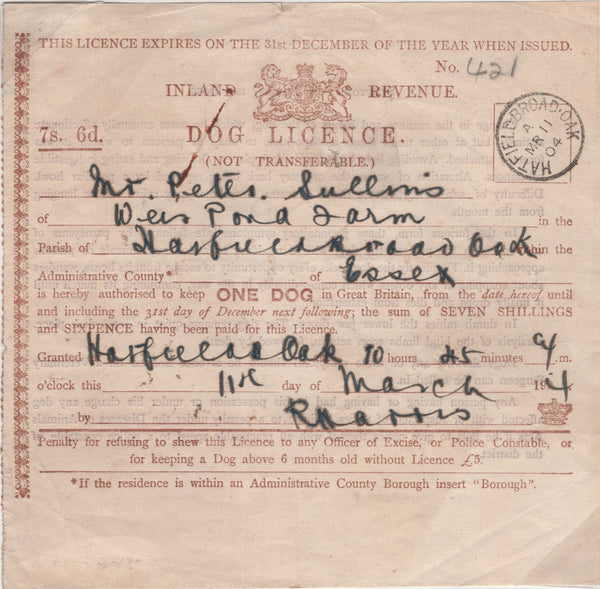 THIS LICENCE EXPIRES ON THE 31st DECEMBER OF THE YEAR WHEN ISSUED.
No. 421
INLAND REVENUE.
7s. 6d.
DOG LICENCE.
(NOT TRANSFERABLE.)
HATFIELD-BROAD-OAK
A
MR 11
04
Mr. Peter Sullins
of Weir Pond Farm in the
Parish of Hatfield Broad Oak within the
Administrative County* of Essex
is hereby authorised to keep ONE DOG in Great Britain, from the date hereof until
and including the 31st day of December next following; the sum of SEVEN SHILLINGS
and SIXPENCE having been paid for this Licence.
Granted at Hatfield Oak 10 hours 45 minutes a.m.
o'clock this 11th day of March 1904
by R Harris
Penalty for refusing to shew this Licence to any Officer of Excise, or Police Constable, or
for keeping a Dog above 6 months old without Licence £5.
*If the residence is within an Administrative County Borough insert "Borough".